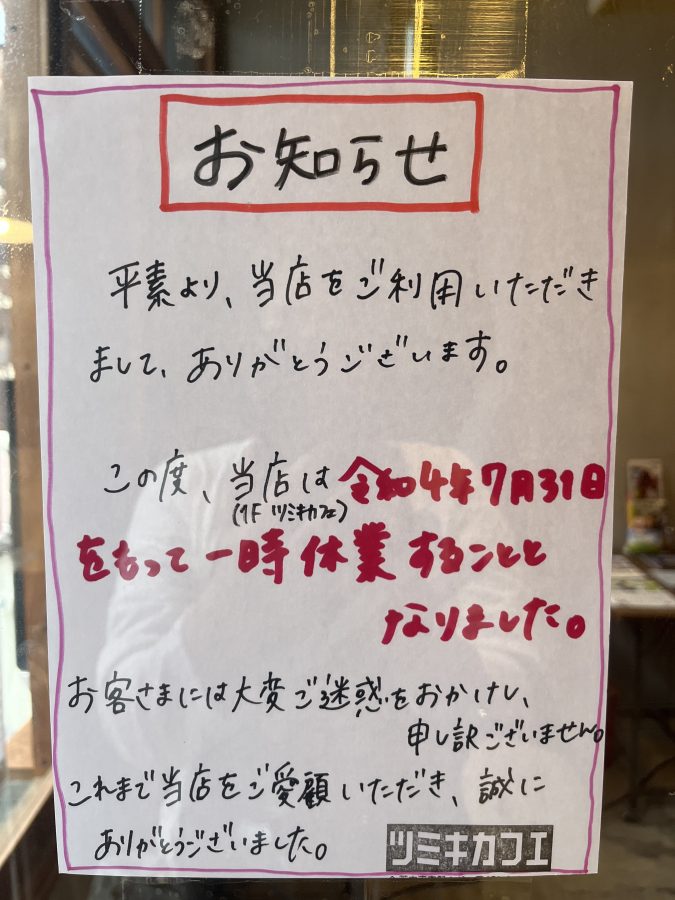 お知らせ
平素より、当店をご利用いただき
まして、ありがとうございます。
この度、当店は令和4年7月31日
(1F ツミキカフェ)
をもって一時休業することと
なりました。
お客さまには大変ご迷惑をおかけし、
申し訳ございません。
これまで当店をご愛顧いただき、誠に
ありがとうございました。
ツミキカフェ